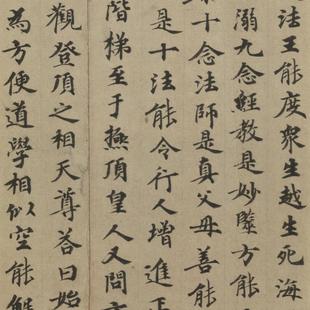 法王能度衆生越生死海
溺九念經教是妙隥方能
十念法師是真父母善能
是十法能令行人增進
階梯至于極頂皇人又問
觀登頂之相天尊荅曰始
為方便道學相似空能